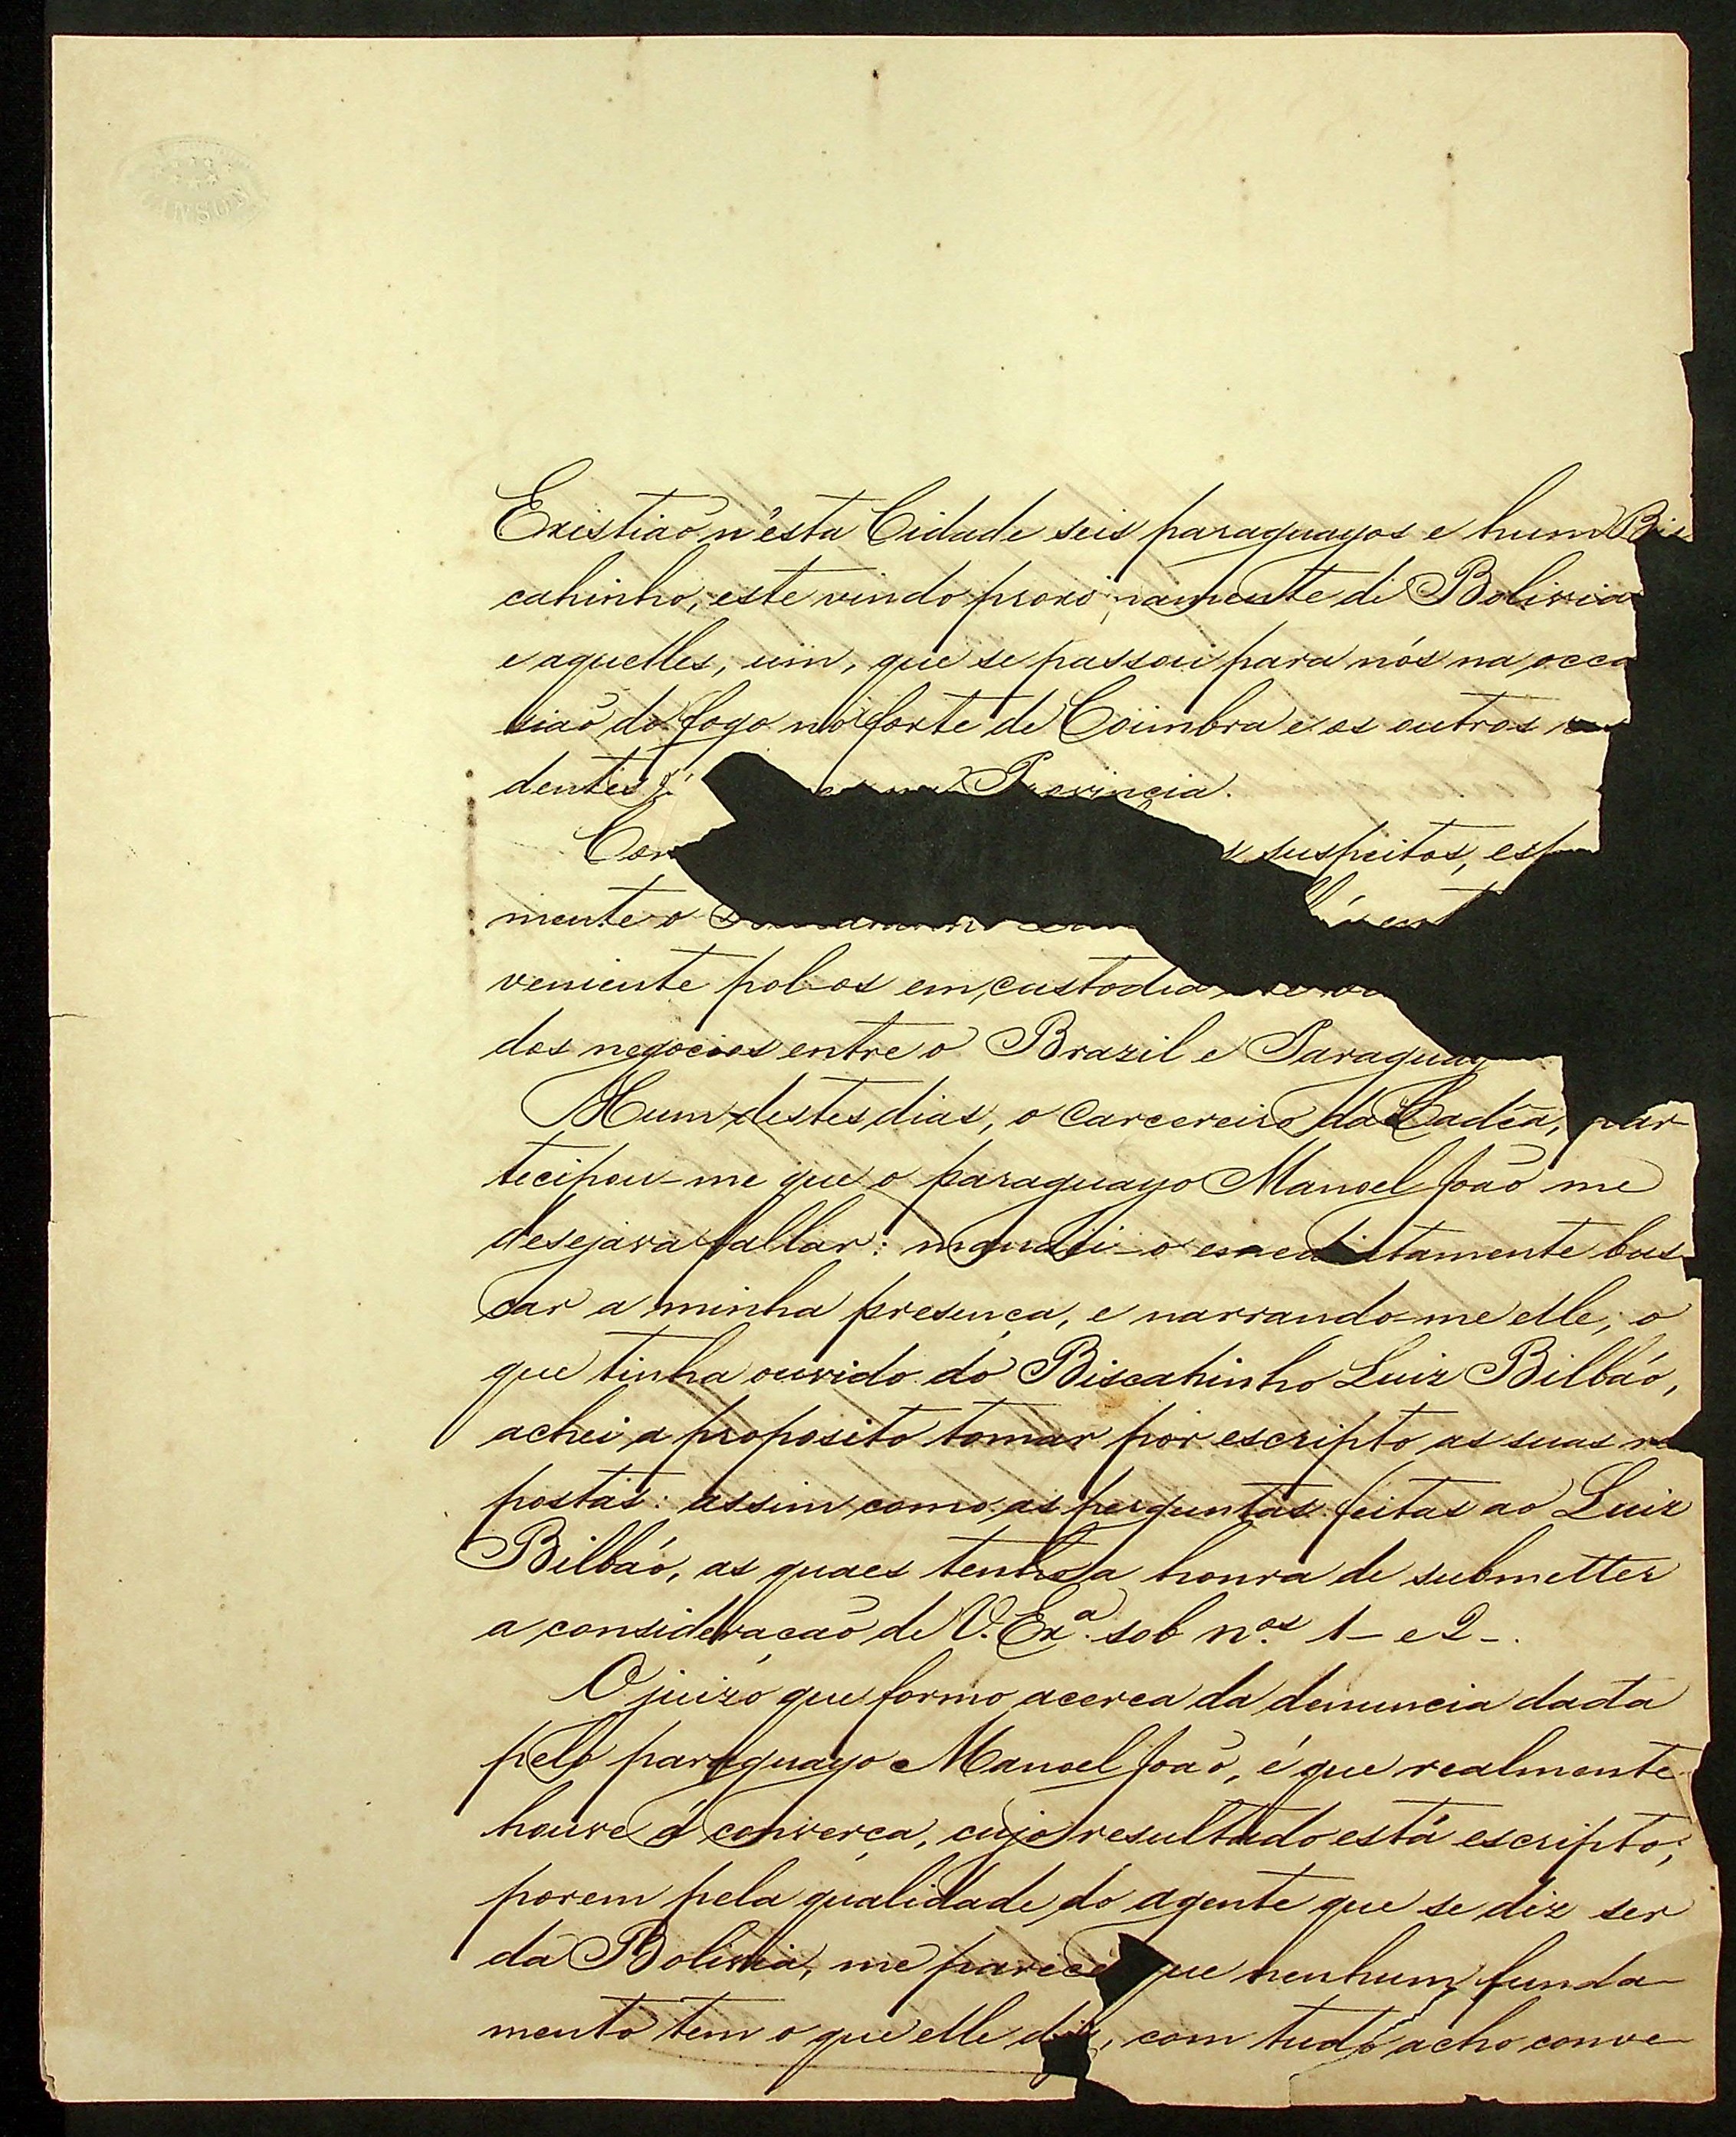 CANSON
Existião n'esta Cidade seis paraguayos e hum Bis
cahinho, este vindo proximamente de Bolivia
e aquelles, um, que se passou para nós na occa
sião do fogo no forte de Coimbra e os outros
dentes Provincia.
suspeitos,
mente o
veniente pol-os em custodia
dos negocios entre o Brazil e Paraguay
Hum destes dias, o Carcereiro da Cadêa, par
tecipou-me que o paraguayo Manoel João me
desejava fallar: mandei-o emediatamente bus
car a minha presença, e narrando-me elle, o
que tinha ouvido do Biscahinho Luiz Bilbáo,
achei a proposito tomar por escripto as suas res
postas: assim como as perguntas feitas ao Luiz
Bilbáo, as quaes tenho a honra de submetter
a consideração de V. Exª. sob nos. 1- e 2-.
O juizo que formo acerca da denuncia dada
pelo paraguayo Manoel João, é que realmente
houve a converça, cujo resultado está escripto;
porem pela qualidade do agente que se diz ser
da Bolivia, me parece que nenhum funda-
mento tem o que elle diz, com tudo acho conve-